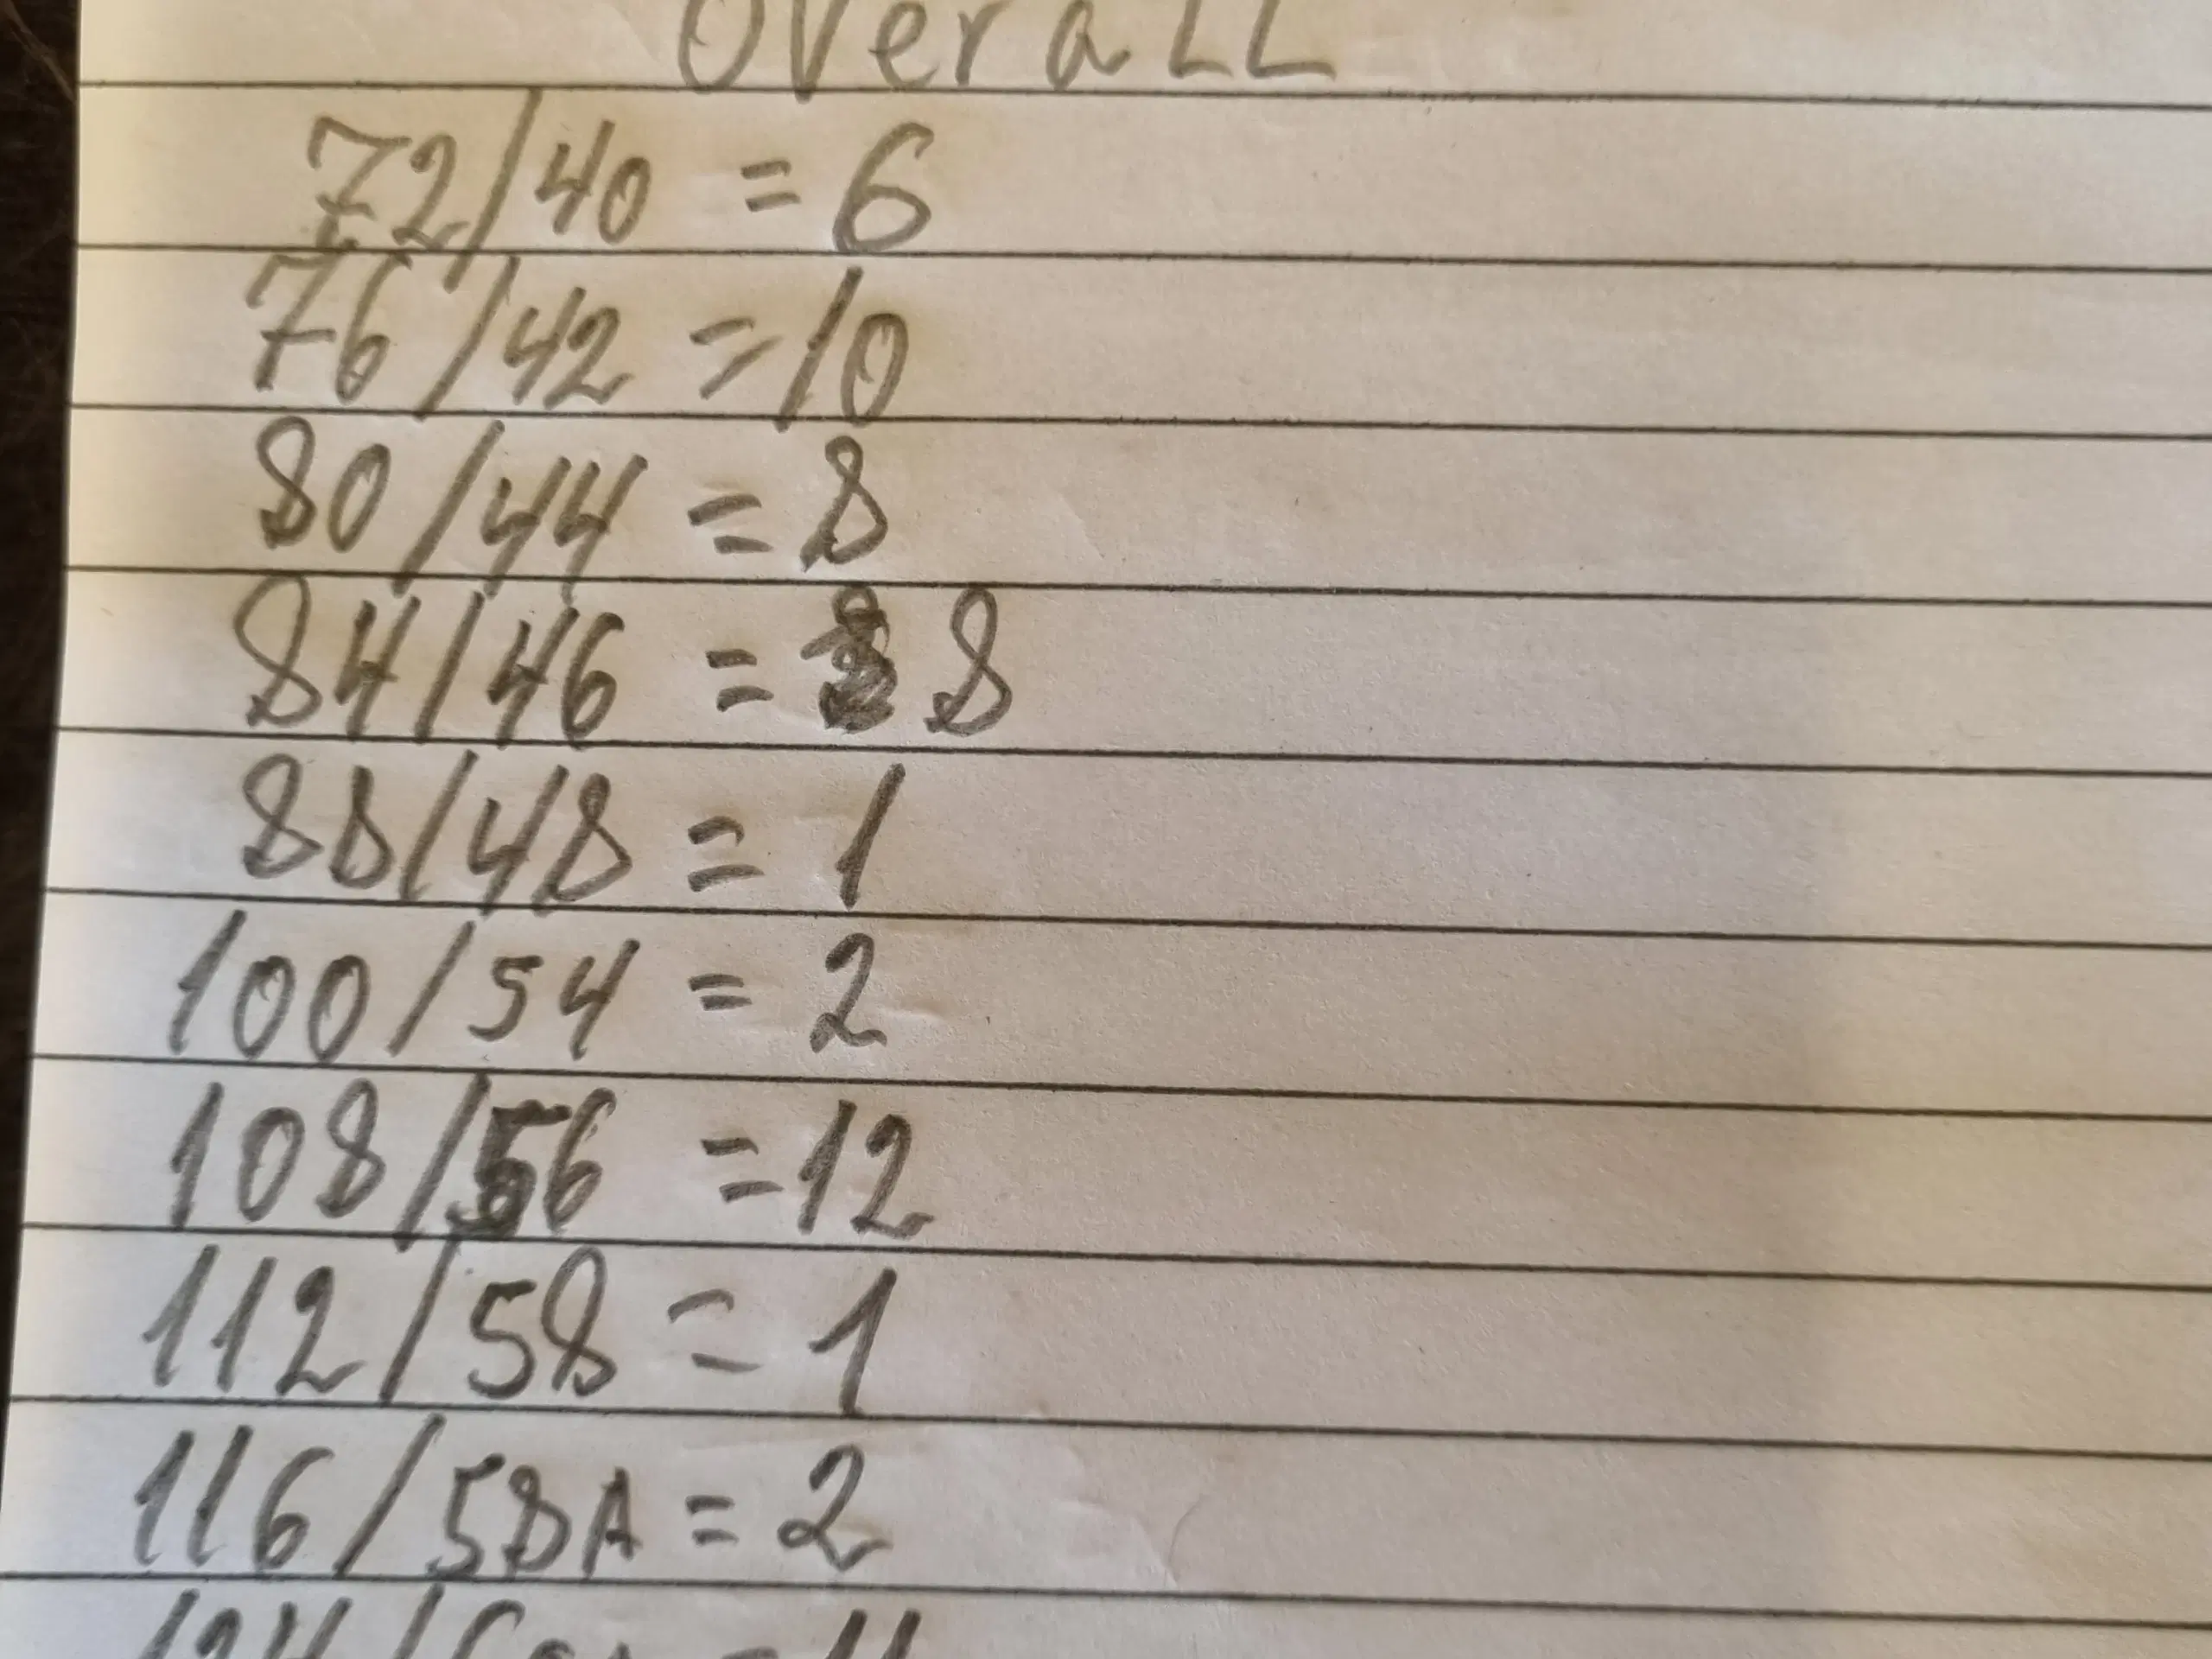 Overall
72/40 = 6
76/42 = 10
80/44 = 8
84/46 = 8
88/48 = 1
100/54 = 2
108/56 = 12
112/58 = 1
116/58A = 2